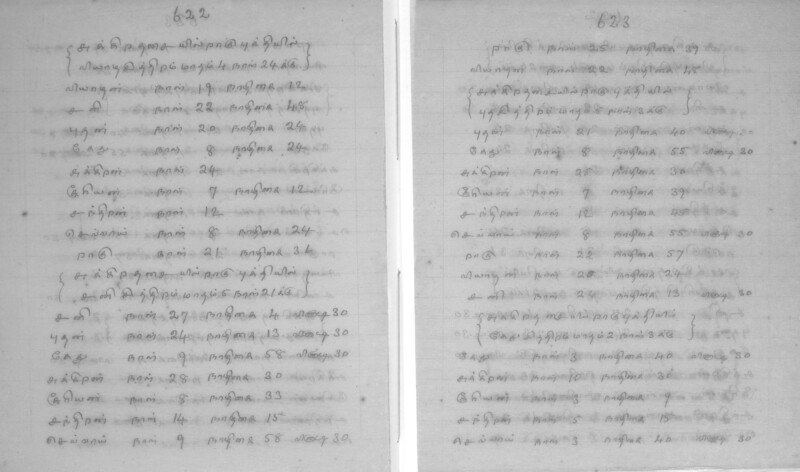 622
{ சுக்கிரதசையில் ராகு புத்தியில் }
{ வியாழசித்திரம் மாதம் 4 நாள் 24க்கு }
வியாழன் நாள் 19 நாழிகை 12
சனி நாள் 22 நாழிகை 48
புதன் நாள் 20 நாழிகை 24
கேது நாள் 8 நாழிகை 24
சுக்கிரன் நாள் 24
நாள் 7 நாழிகை 12
சந்திரன் நாள் 12
செவ்வாய் நாள் 8 நாழிகை 24
ராகு நாள் 21 நாழிகை 36
{ சுக்கிரதசையில் ராகு புத்தியில் }
{ சனி சித்திரம் மாதம் 5 நாள் 21க்கு }
சனி நாள் 27 நாழிகை 4 வினாடி 30
புதன் நாள் 24 நாழிகை 13 வினாடி 30
கேது நாள் 9 நாழிகை 58 வினாடி 30
சுக்கிரன் நாள் 28 நாழிகை 30
நாள் 8 நாழிகை 33
சந்திரன் நாள் 14 நாழிகை 15
செவ்வாய் நாள் 9 நாழிகை 58 வினாடி 30
623
ராகு நாள் 25 நாழிகை 39
வியாழன் நாள் 22 நாழிகை 48
{ சுக்கிரதசையில் ராகு புத்தியில் }
{ புதசித்திரம் மாதம் 5 நாள் 3க்கு }
புதன் நாள் 21 நாழிகை 40 வினாடி 30
கேது நாள் 8 நாழிகை 55 வினாடி 30
சுக்கிரன் நாள் 25 நாழிகை 30
நாள் 7 நாழிகை 39
சந்திரன் நாள் 12 நாழிகை 45
செவ்வாய் நாள் 8 நாழிகை 55 வினாடி 30
ராகு நாள் 22 நாழிகை 57
வியாழன் நாள் 20 நாழிகை 24
சனி நாள் 24 நாழிகை 13 வினாடி 30
{ சுக்கிரதசையில் ராகு புத்தியில் }
{ கேது சித்திரம் மாதம் 2 நாள் 3க்கு }
கேது நாள் 3 நாழிகை 40 வினாடி 30
சுக்கிரன் நாள் 10 நாழிகை 30
நாள் 3 நாழிகை 9
சந்திரன் நாள் 5 நாழிகை 15
செவ்வாய் நாள் 3 நாழிகை 40 வினாடி 30